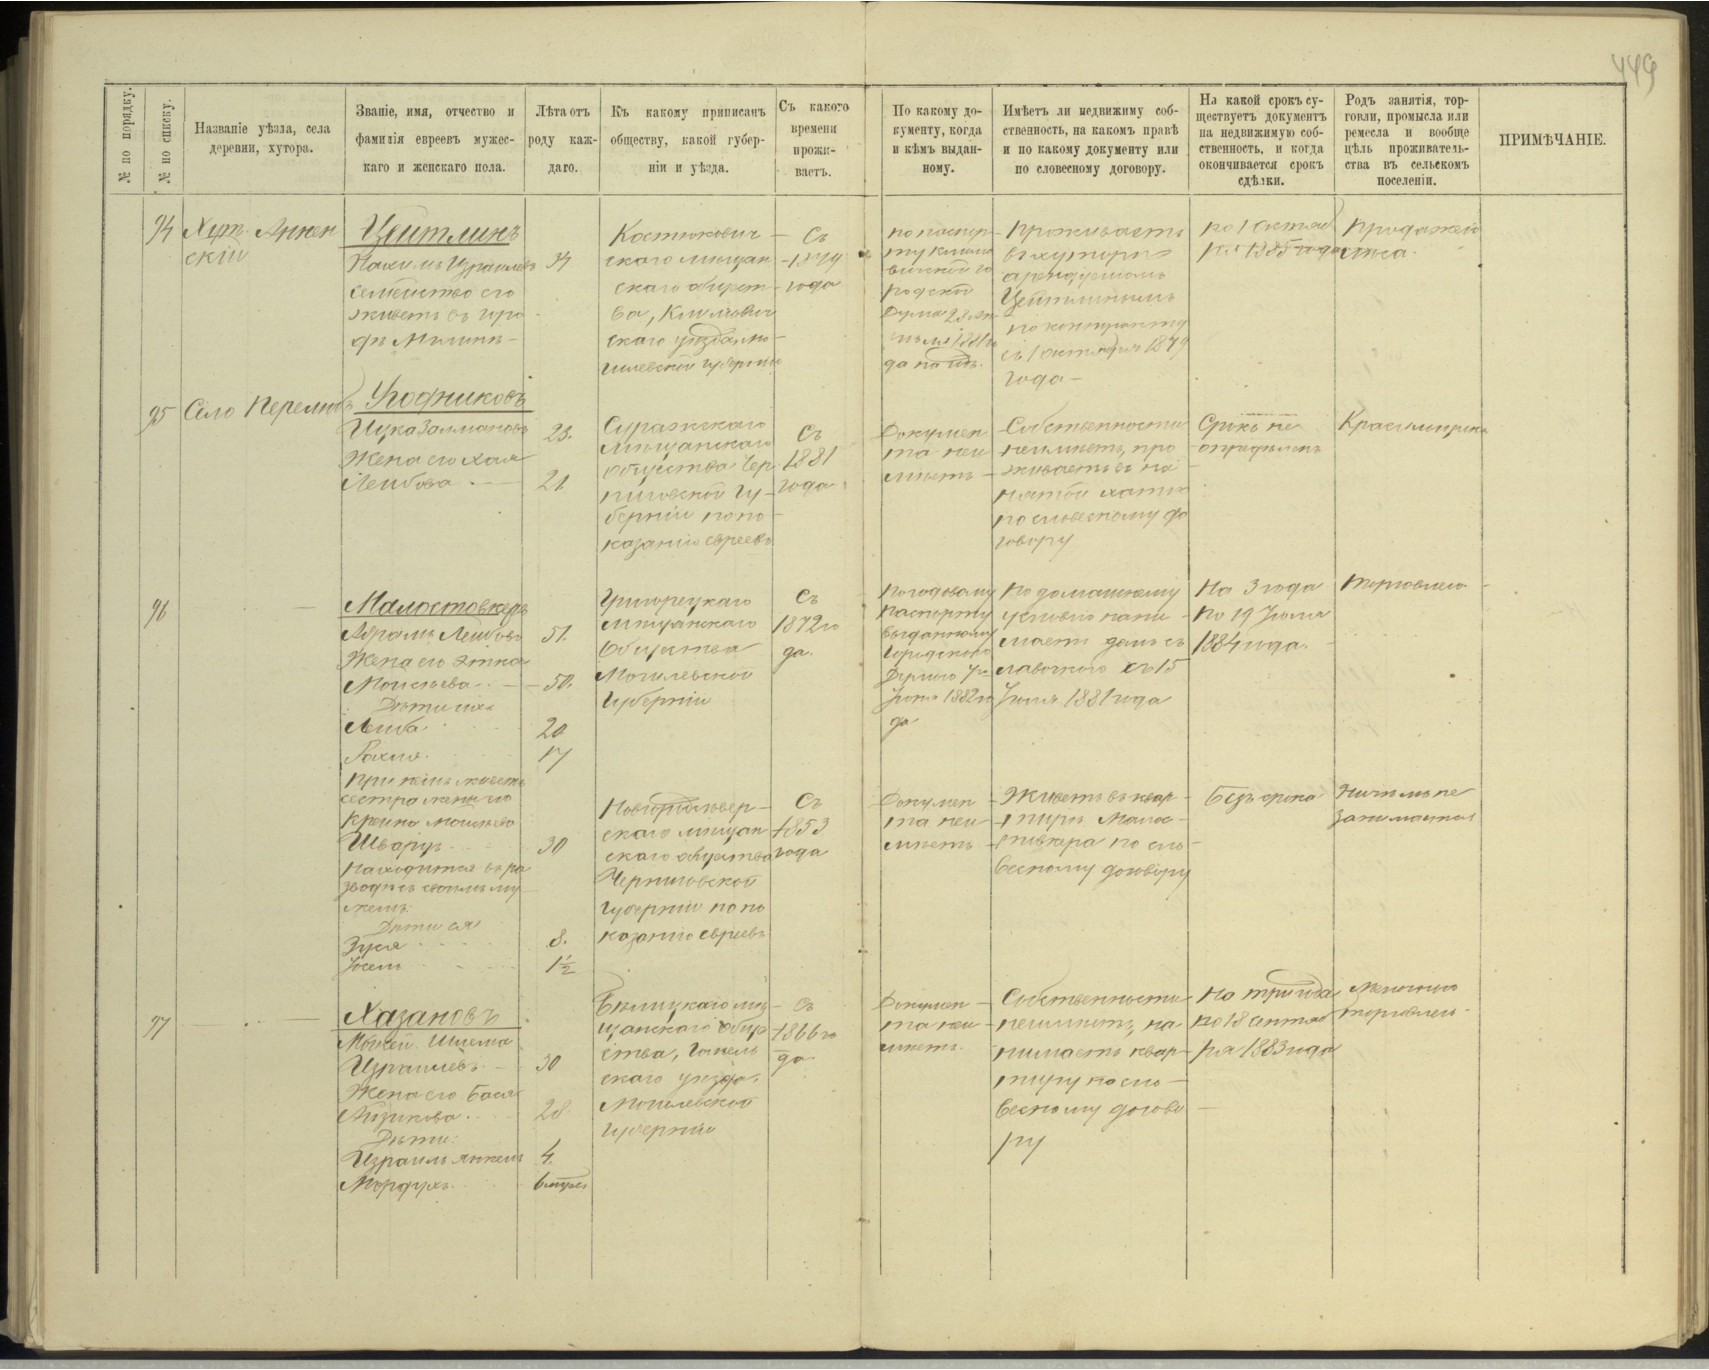 449
№ по порядку.
№ по списку.
Названіе уѣзда, села
деревни, хутора.
Званіе, имя, отчество и
фамилія евреевъ мужес-
каго и женскаго пола.
Лѣта отъ
роду каж-
даго.
Къ какому приписанъ
обществу, какой губер-
ніи и уѣзда.
Съ какого
времени
прожи-
ваетъ.
По какому до-
кументу, когда
и кѣмъ выдан-
ному.
Имѣетъ ли недвижиму соб-
ственность, на какомъ правѣ
и по какому документу или
по словесному договору.
На какой срокъ су-
ществуетъ документъ
на недвижимую соб-
ственность, и когда
окончивается срокъ
сдѣлки.
Родъ занятія, тор-
говли, промысла или
ремесла и вообще
цѣль проживатель-
ства въ сельскомъ
поселеніи.
ПРИМѢЧАНІЕ.
94
Хут.
скій
Цейтлинъ
Нахимъ Израилевъ
семейство его
живетъ въ горо
дѣ
34
Костюкович
скаго мѣщан
скаго общест
ва, Климович
скаго уѣзда Мо
гилевской губерніи
Съ
1879
года
по паспор
ту Климо
вичской го
родской
Думы
1881 го
да
Проживаетъ
въ хуторѣ
арендуемомъ
Цейтлинымъ
по контракту
съ 1 октября 1879
года
по 1 октяб
ря 1885 года
Продажей
лѣса.
95
Село
Угодниковъ
Ицка Залмановъ
Жена его Хая
Лейбова
23.
21.
Суражскаго
мѣщанскаго
общества Чер
ниговской гу
берніи по по
казанію евреевъ
Съ
1881
года
Докумен
та неи
мѣетъ
Собственности
неимѣетъ, про
живаетъ въ на
нятой хатѣ
по словесному до
говору
Срокъ не
опредѣленъ
96
Абрамъ Лейбовъ
Жена его Этка
Мойсѣева
Дѣти ихъ
Лейба
Рахля
При немъ живетъ
сестра жены его
Крейна Мойсѣева
Шварцъ
находится въ ра
зводѣ съ своимъ му
жемъ
Дѣти ея
Зуся
51.
50.
20
17
30
8.
1½
Горецкаго
мѣщанскаго
общества
Могилевской
губерніи
Съ
1872 го
да.
По годовому
паспорту
выданному
Городского
Думою
1882 го
да
По домашнему
условію нани
маетъ домъ съ
лавочкою съ 15
Іюля 1881 года
На 3 года
по 19 Іюля
1884 года.
Торговлею
скаго мѣщан
скаго общества
Черниговской
губерніи по по
казанію евреевъ
Съ
1853
года
Докумен
та неи
мѣетъ
Живетъ въ квар
тирѣ Малос
по сло
весному договору
Безъ срока
Ничемъ не
занимается
97
Хазановъ
Израилевъ
Жена его Бася
Айзикова
Дѣти:
Израиль Янкель
Мордухъ
30
28
4.
6 мѣсяц
Бѣлицкаго мѣ
щанскаго обще
ства, Гомель
скаго уѣзда,
Могилевской
губерніи
Съ
1866 го
да
Докумен
та неи
мѣетъ.
Собственности
неимѣетъ, на
нимаетъ квар
тиру по сло
весному догово
ру
На три года
по 18 октяб
ря 1883 года
Мелочною
торговлею.